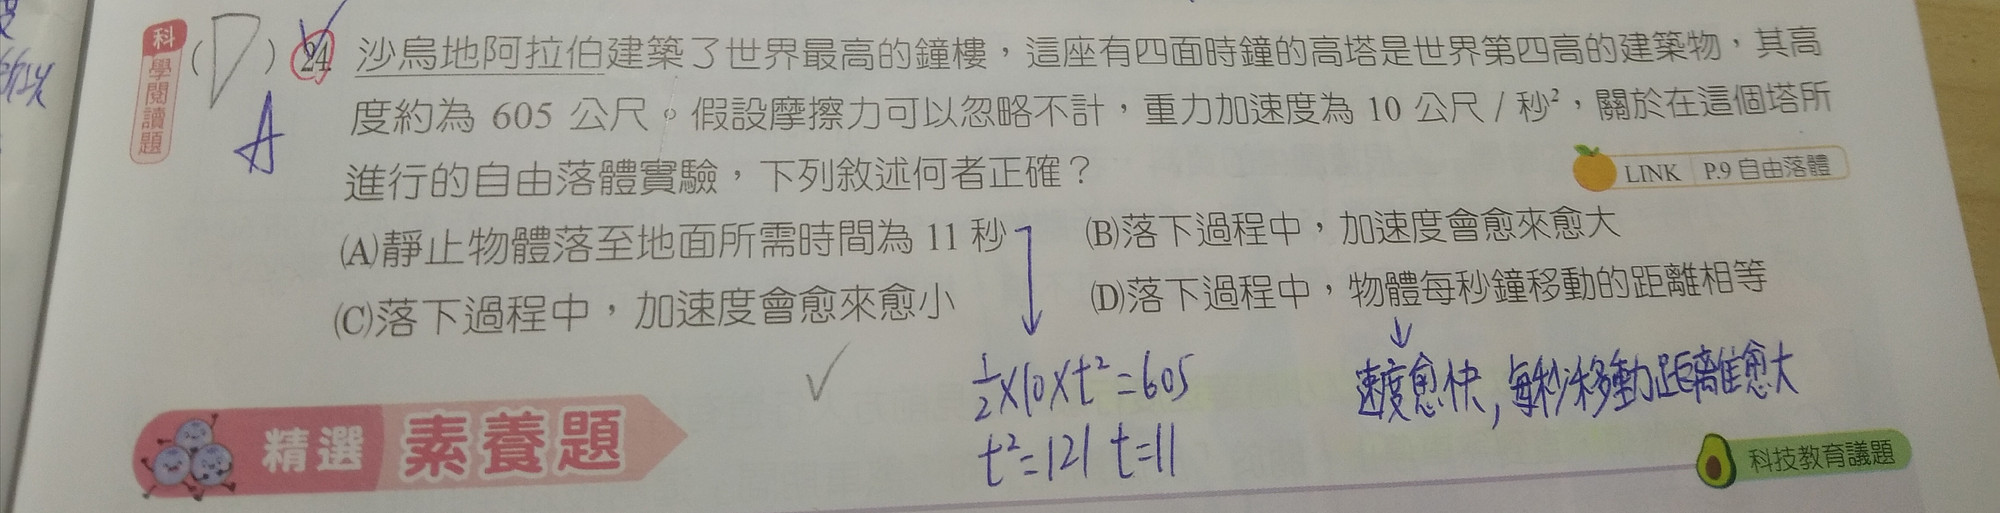 科學閱讀題
(D) 24 沙烏地阿拉伯建築了世界最高的鐘樓，這座有四面時鐘的高塔是世界第四高的建築物，其高
A
度約為 605 公尺。假設摩擦力可以忽略不計，重力加速度為 10 公尺 / 秒²，關於在這個塔所
進行的自由落體實驗，下列敘述何者正確？
LINK P.9 自由落體
(A)靜止物體落至地面所需時間為 11 秒 (B)落下過程中，加速度會愈來愈大
(C)落下過程中，加速度會愈來愈小 (D)落下過程中，物體每秒鐘移動的距離相等
½×10×t²=605
t²=121 t=11
速度愈快，每秒移動距離愈大
精選 素養題
科技教育議題